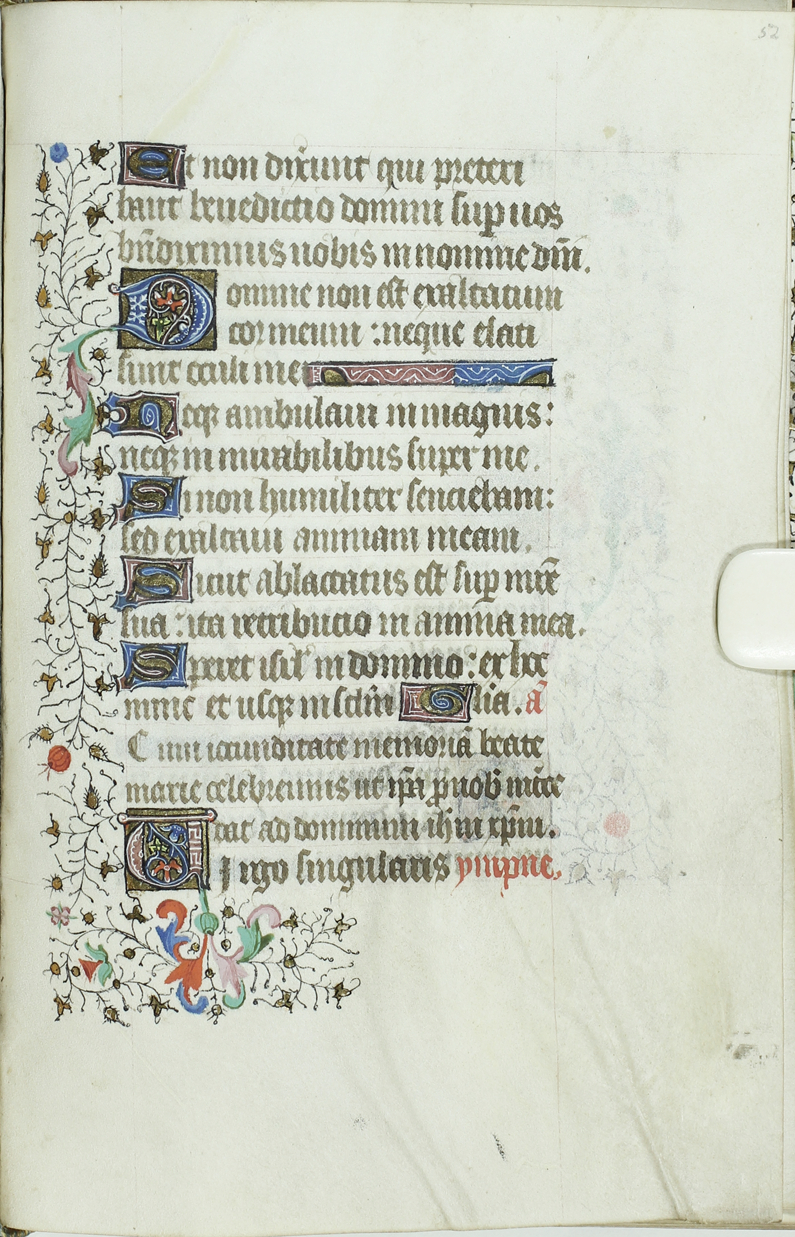 52
Et non dixerunt qui preteri
bant benedictio domini sup uos
bn̄diximus uobis in nomine dm̄i.
Domine non est exaltatum
cor meum : neque elati
sunt oculi mei
Neqꝫ ambulaui in magnis :
neqꝫ in mirabilibus super me .
Si non humiliter senciebam :
sed exaltaui animam meam .
Sicut ablactatus est sup mr̄e
sua : ita retributio in anima mea .
Speret isrl' in domino : ex hoc
nunc et usqꝫ in sclm̄ Glia . ā
Cum iocunditate memoriā beate
marie celebremus ut ip̄a ꝓ nob̄ int̄ce
dat ad dominum ih̄m xp̄m .
Uirgo singularis ympne .